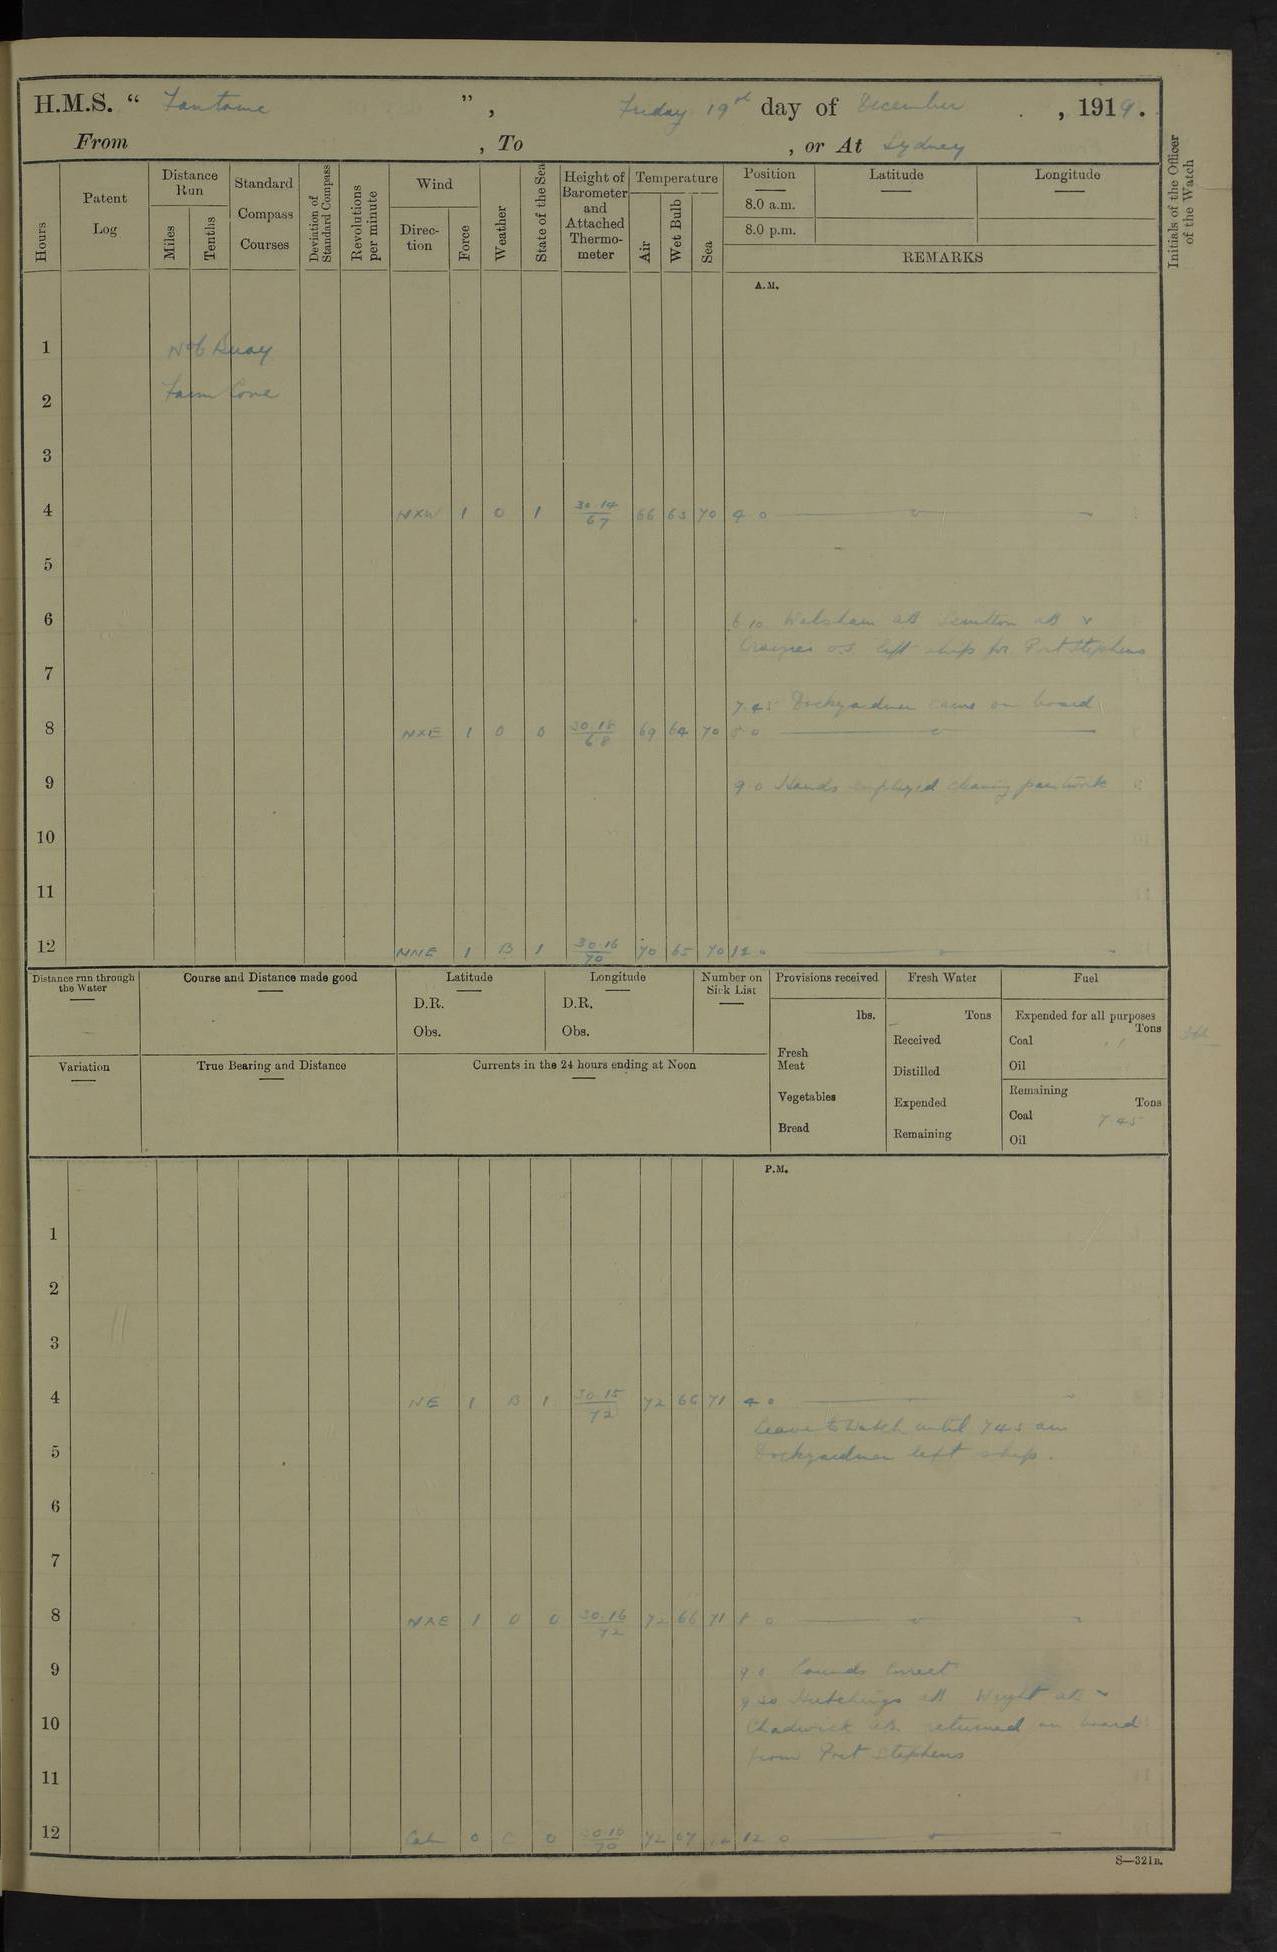 H.M.S. “ Fantome ”, Friday 19th day of December, 1919.
From , To , or At Sydney
Hours
Patent Log
Distance Run
Miles
Tenths
Standard Compass Courses
Deviation of Standard Compass
Revolutions per minute
Wind
Direction
Force
Weather
State of the Sea
Height of Barometer and Attached Thermometer
Temperature
Air
Wet Bulb
Sea
Position
8.0 a.m.
8.0 p.m.
Latitude
Longitude
REMARKS
Initials of the Officer of the Watch
A.M.
1 No 6 Buoy
2 Farm Cove
3
4 NXW 1 O 1 30.14/67 66 63 70 4 0
5
6 6 10 Walsham AB AB &
OS left ship for Port Stephens
7
7 45 Dockyardmen came on board
8 NXE 1 O 0 30.15/68 69 64 70 8 0
9 9 0 Hands employed cleaning paintwork
10
11
12 NNE 1 B 1 30.16/70 70 65 70 12 0
Distance run through the Water
Course and Distance made good
Latitude
D.R.
Obs.
Longitude
D.R.
Obs.
Number on Sick List
Provisions received
lbs.
Fresh Meat
Vegetables
Bread
Fresh Water
Tons
Received
Distilled
Expended
Remaining
Fuel
Expended for all purposes
Tons
Coal
Oil
Remaining
Tons
Coal 7.45
Oil
Variation
True Bearing and Distance
Currents in the 24 hours ending at Noon
P.M.
1
2
3
4 NE 1 B 1 30.15/72 72 66 71 4 0
Leave to Watch until 7 45 am
5 Dockyardmen left ship.
6
7
8 NXE 1 O 0 30.16/72 72 66 71 8 0
9 9 0 Rounds Correct
9 30 Hutchings AB Wright AB &
10 Chadwick AB. returned on board
from Port Stephens
11
12 Calm 0 C 0 72 67 12 0
S—321B.